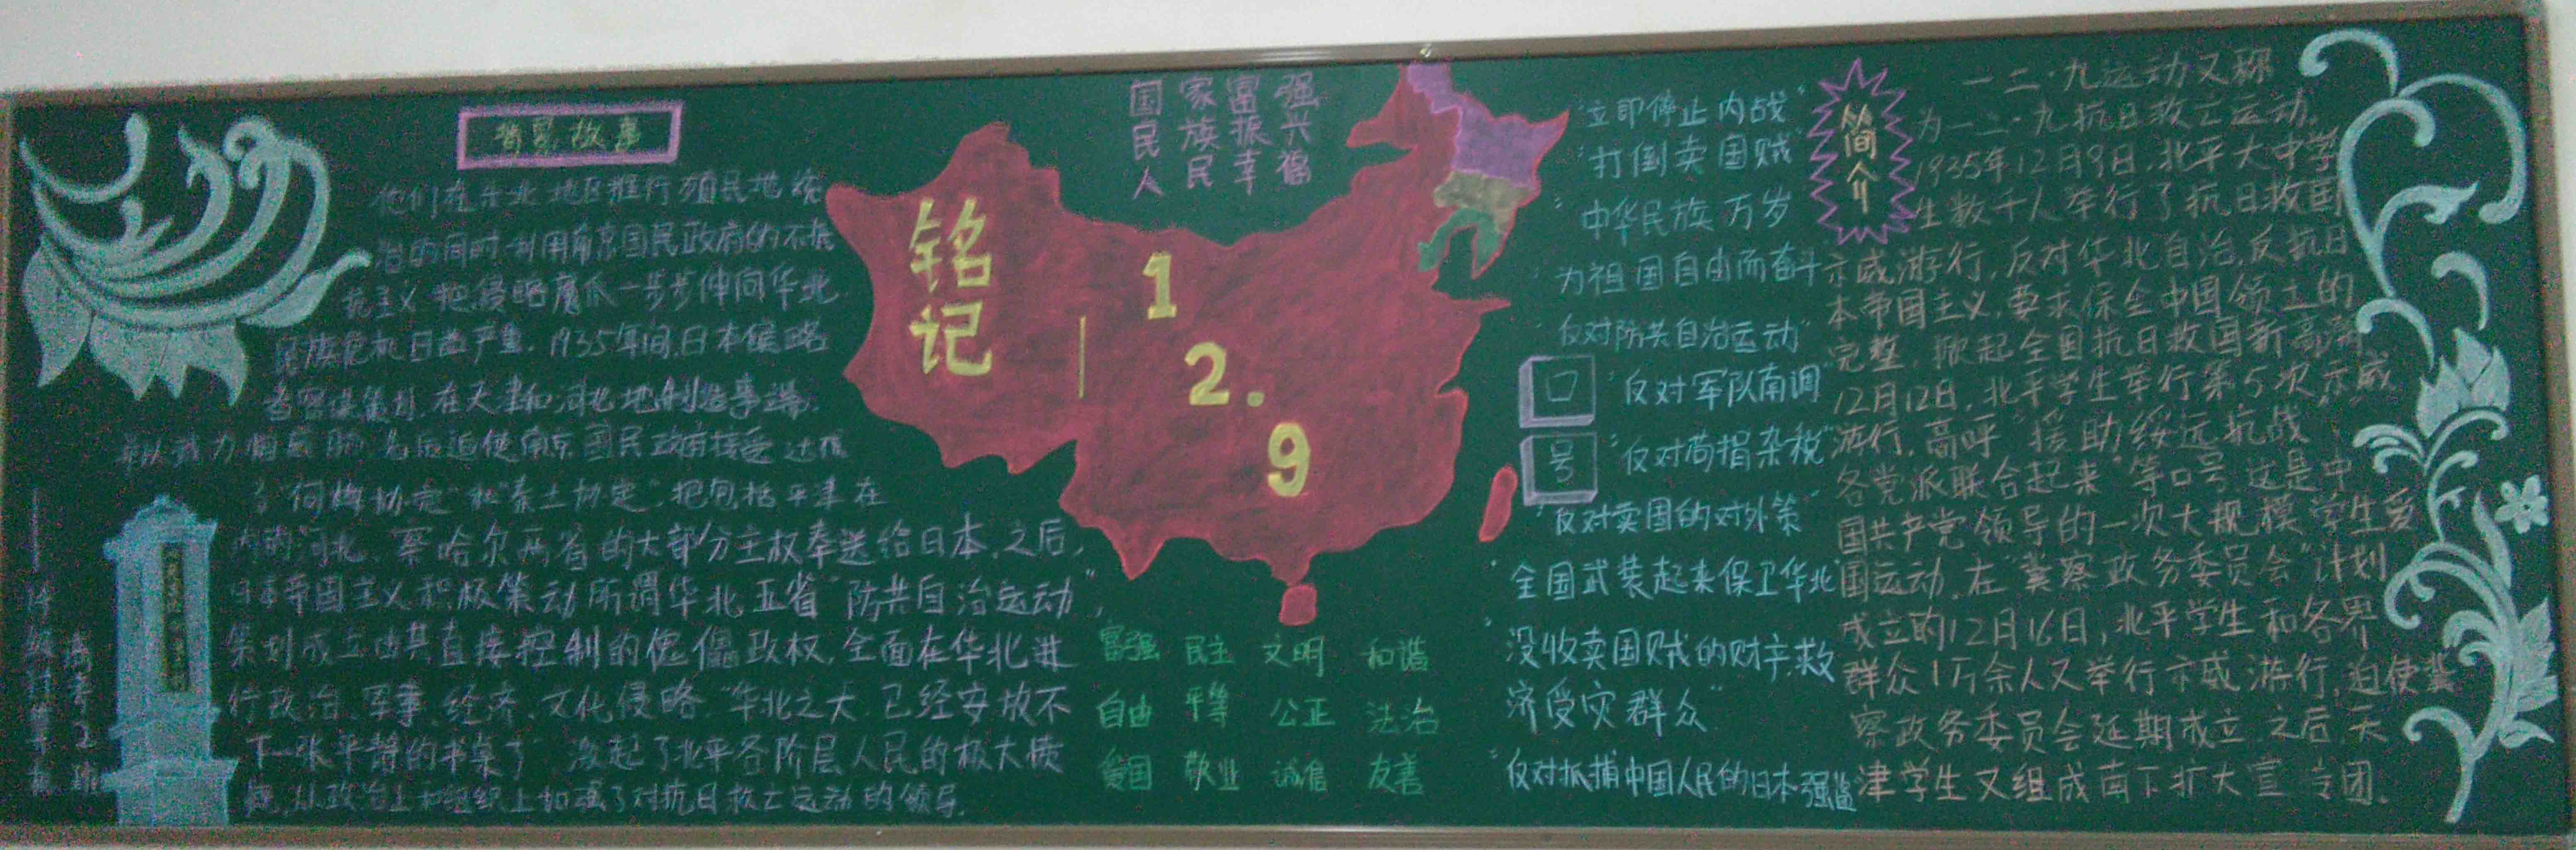 背景故事
他们在东北地区推行殖民地统
治的同时利用南京国民政府的不抵
抗主义把侵略魔爪一步步伸向华北
民族危机日益严重.1935年间,日本侵略
者密谋策划,在天津和河北地制造事端.
并以武力相威胁,先后迫使南京国民政府接受达成
了"何梅协定"和"秦土协定",把包括平津在
内的河北、察哈尔两省的大部分主权奉送给日本.之后,
日本帝国主义积极策动所谓华北五省"防共自治运动",
策划成立由其直接控制的傀儡政权,全面在华北进
行政治、军事、经济、文化侵略."华北之大,已经安放不
下一张平静的书桌了"激起了北平各阶层人民的极大愤
慨,从政治上和组织上加强了对抗日救亡运动的领导.
2班
国家富强
民族振兴
人民幸福
铭记
1
2.
9
富强 民主 文明 和谐
自由 平等 公正 法治
爱国 敬业 诚信 友善
口号
"立即停止内战"
"打倒卖国贼"
"中华民族万岁
"为祖国自由而奋斗
"反对防共自治运动"
"反对军队南调"
"反对苛捐杂税"
"反对卖国的对外策"
"全国武装起来保卫华北"
"没收卖国贼的财产,救
济受灾群众"
"反对抓捕中国人民的日本强盗
简介
一二·九运动又称
为一二·九抗日救亡运动.
1935年12月9日,北平大中学
生数千人举行了抗日救国
示威游行,反对华北自治,反抗日
本帝国主义,要求保全中国领土的
完整,掀起全国抗日救国新高潮.
12月12日,北平学生举行第5次示威
游行,高呼"援助绥远抗战"
各党派联合起来"等口号.这是中
国共产党领导的一次大规模学生爱
国运动.在"冀察政务委员会"计划
成立的12月16日,北平学生和各界
群众1万余人又举行示威游行,迫使冀
察政务委员会延期成立.之后,天
津学生又组成南下扩大宣专团.